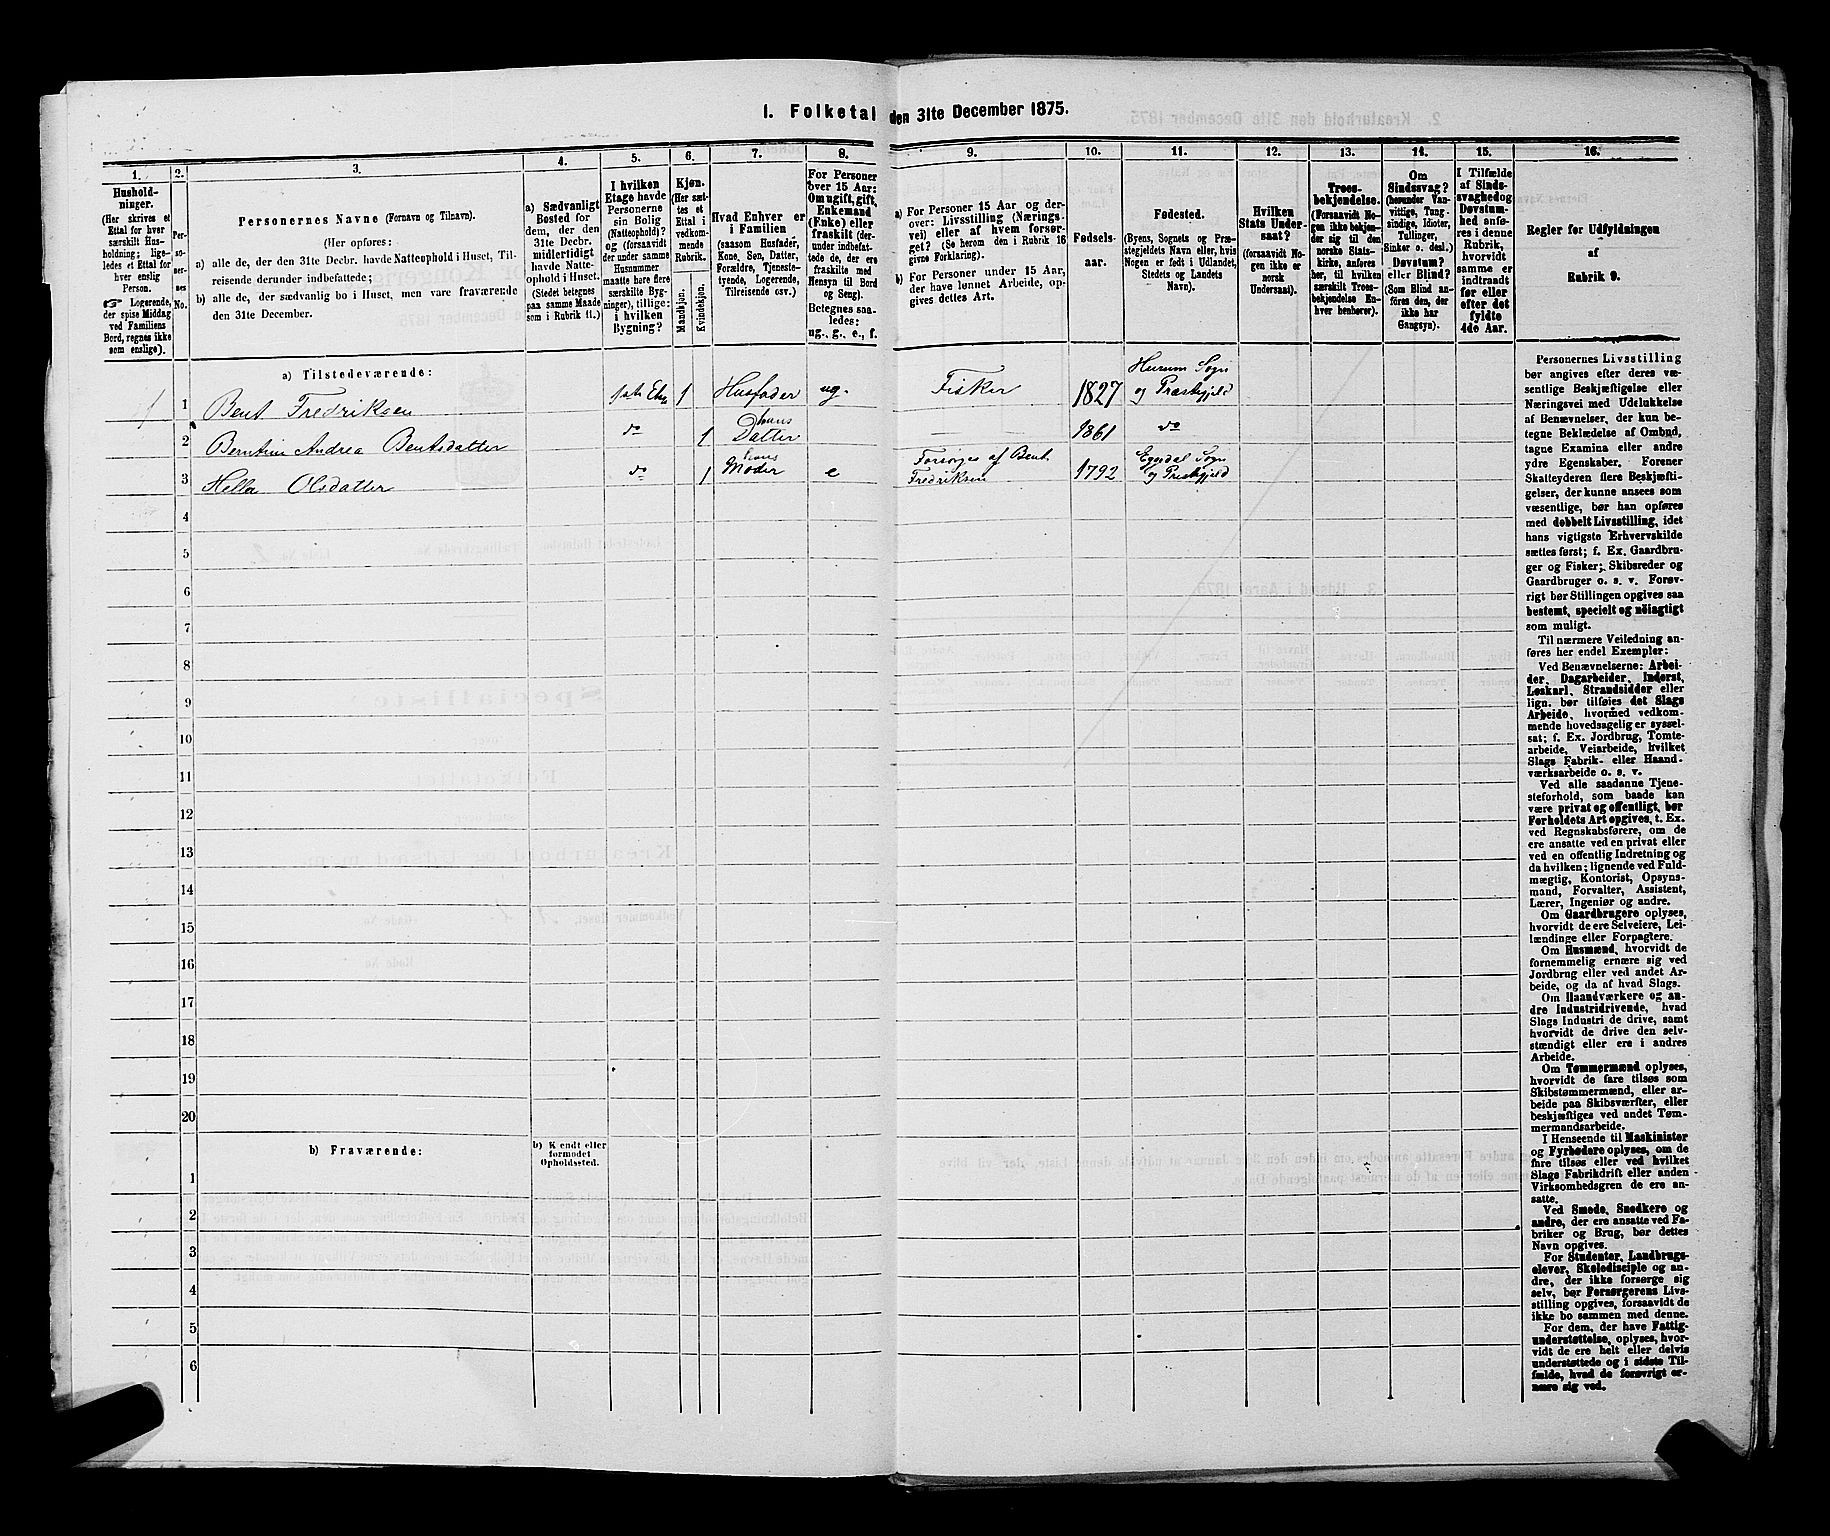 1. Folketal den 31te December 1875.
1.
2.
3.
4.
5.
6.
7.
8.
9.
10.
11.
12.
13.
14.
15.
16.
Hushold-
ninger.
(Her skrives et
Ettal for hver
særskilt Hus-
holdning; lige-
ledes et Ettal for
hver enslig
Person.
☞ Logerende,
der spise Middag
ved Familiens
Bord, regnes ikke
som enslige).
Per-
so-
ner-
nes
No.
Personernes Navne (Fornavn og Tilnavn).
(Her opføres:
a) alle de, der den 31te Decbr. havde Natteophold i Huset, Til-
reisende derunder indbefattede;
b) alle de, der sædvanlig bo i Huset, men vare fraværende
den 31te December.
a) Sædvanligt
Bosted for
dem, der den
31te Decbr.
midlertidigt
havde Natte-
ophold i Huset.
(Stedet betegnes
paa samme Maade
som i Rubrik 11.)
I hvilken
Etage havde
Personerne
sin Bolig
(Natteophold)?
og (forsaavidt
der under samme
Husnummer
maatte høre flere
særskilte Byg-
ninger), tillige:
i hvilken
Bygning?
Kjøn.
(Her sæt-
tes et
Ettal i
vedkom-
mende
Rubrik.
Mandkjøn.
Kvindekjøn.
Hvad Enhver er
i Familien
(saasom Husfader,
Kone, Søn, Datter,
Forældre, Tjeneste-
tyende, Logerende,
Tilreisende osv.)
For Personer
over 15 Aar:
Om ugift, gift,
Enkemand
(Enke) eller
fraskilt (der-
under indbefat-
tede de, der ere
fraskilte med
Hensyn til Bord
og Seng).
Betegnes saa-
ledes:
ug., g., e., f.
a) For Personer 15 Aar og der-
over: Livsstilling (Nærings-
vei) eller af hvem forsør-
get? (Se herom den i Rubrik 16
givne Forklaring).
b) For Personer under 15 Aar,
der have lønnet Arbeide, op-
gives dettes Art.
Fødsels-
aar.
Fødested.
(Byens, Sognets og Præ-
stegjeldets Navn eller, hvis
Nogen er født i Udlandet,
Stedets og Landets
Navn).
Hvilken
Stats Under-
saat?
(forsaavidt No-
gen ikke er
norsk
Undersaat).
Troes-
bekjendelse.
(Forsaavidt No-
gen ikke bekjen-
der sig til den
norske Stats-
kirke, anføres
her, til hvilken
særskilt Troes-
bekjendelse En-
hver henhører).
Om
Sindssvag?
(herunder Van-
vittige, Tung-
sindige, Idioter,
Tullinger,
Sinker o. desl.)
Døvstum?
eller Blind?
(Som Blind an-
føres den, der
ikke har
Gangsyn).
I Tilfælde
af Sinds-
svaghed og
Døvstum-
hed anfø-
res i denne
Rubrik,
hvorvidt
samme er
indtraadt
før eller
efter det
fyldte
4de Aar.
Regler for Udfyldningen
af
Rubrik 9.
a) Tilstedeværende:
1 1 Bent Fredriksen 1ste Eta 1 Husfader ug. Fisker 1827 Hurum Sogn
og Præstegjeld
2 Berntine Andrea Bentsdatter do 1 hans
Datter — 1861 do
3 Hella Olsdatter do 1 hans
Moder e Forsørges af Bent
Fredriksen 1792 Egedal Sogn
og Præstegjeld
4
5
6
7
8
9
10
11
12
13
14
15
16
17
18
19
20
b) Fraværende:
b) Kjendt eller
formodet
Opholdssted.
1
2
3
4
5
6
Personernes Livsstilling
bør angives efter deres væ-
sentlige Beskjæftigelse eller
Næringsvei med Udelukkelse
af Benævnelser, der kun be-
tegne Beklædelse af Ombud,
tagne Examina eller andre
ydre Egenskaber. Forener
Skatteyderen flere Beskjæfti-
gelser, der kunne ansees som
væsentlige, bør han opføres
med dobbelt Livsstilling, idet
hans vigtigste Erhvervskilde
sættes først; f. Ex. Gaardbru-
ger og Fisker; Skibsreder og
Gaardbruger o. s. v. Forøv-
rigt bør Stillingen opgives saa
bestemt, specielt og nøiagtigt
som muligt.
Til nærmere Veiledning an-
føres her endel Exempler:
Ved Benævnelserne: Arbei-
der, Dagarbeider, Inderst,
Løskarl, Strandsidder eller
lign. bør tilføies det Slags
Arbeide, hvormed vedkom-
mende hovedsagelig er syssel-
sat; f. Ex. Jordbrug, Tomte-
arbeide, Veiarbeide, hvilket
Slags Fabrik- eller Haand-
værksarbeide o. s. v.
Ved alle saadanne Tjene-
steforhold, som baade kan
være privat og offentligt, bør
Forholdets Art opgives, t. Ex.
ved Regnskabsførere, om de
ere ansatte ved en privat eller
ved en offentlig Indretning og
da hvilken; lignende ved Fuld-
mægtig, Kontorist, Opsyns-
mand, Forvalter, Assistent,
Lærer, Ingeniør og andre.
Om Gaardbrugere oplyses,
hvorvidt de ere Selveiere, Lei-
lændinge eller Forpagtere.
Om Husmænd, hvorvidt de
fornemmelig ernære sig ved
Jordbrug eller ved andet Ar-
beide, og da af hvad Slags.
Om Haandværkere og an-
dre Industridrivende, hvad
Slags Industri de drive, samt
hvorvidt de drive den selv-
stændigt eller ere i andres
Arbeide.
Om Tømmermænd oplyses,
hvorvidt de fare tilsøs som
Skibstømmermænd, eller ar-
beide paa Skibsværfter, eller
beskjæftiges ved andet Tøm-
mermandsarbeide.
I Henseende til Maskinister
og Fyrbødere oplyses, om de
fare tilsøs eller ved hvilket
Slags Fabrikdrift eller anden
Virksomhedsgren de ere an-
satte.
Ved Smede, Snedkere og
andre, der ere ansatte ved Fa-
briker og Brug, bør dettes
Navn opgives.
For Studenter, Landbrugs-
elever, Skoledisciple og an-
dre, der ikke forsørge sig
selv, bør Forsørgerens Livs-
stilling opgives, forsaavidt de
ikke bo sammen med denne.
For dem, der have Fattig-
understøttelse, oplyses, hvor-
vidt de ere helt eller delvis
understøttede og i sidste Til-
fælde, hvad de forøvrigt er-
nære sig ved.